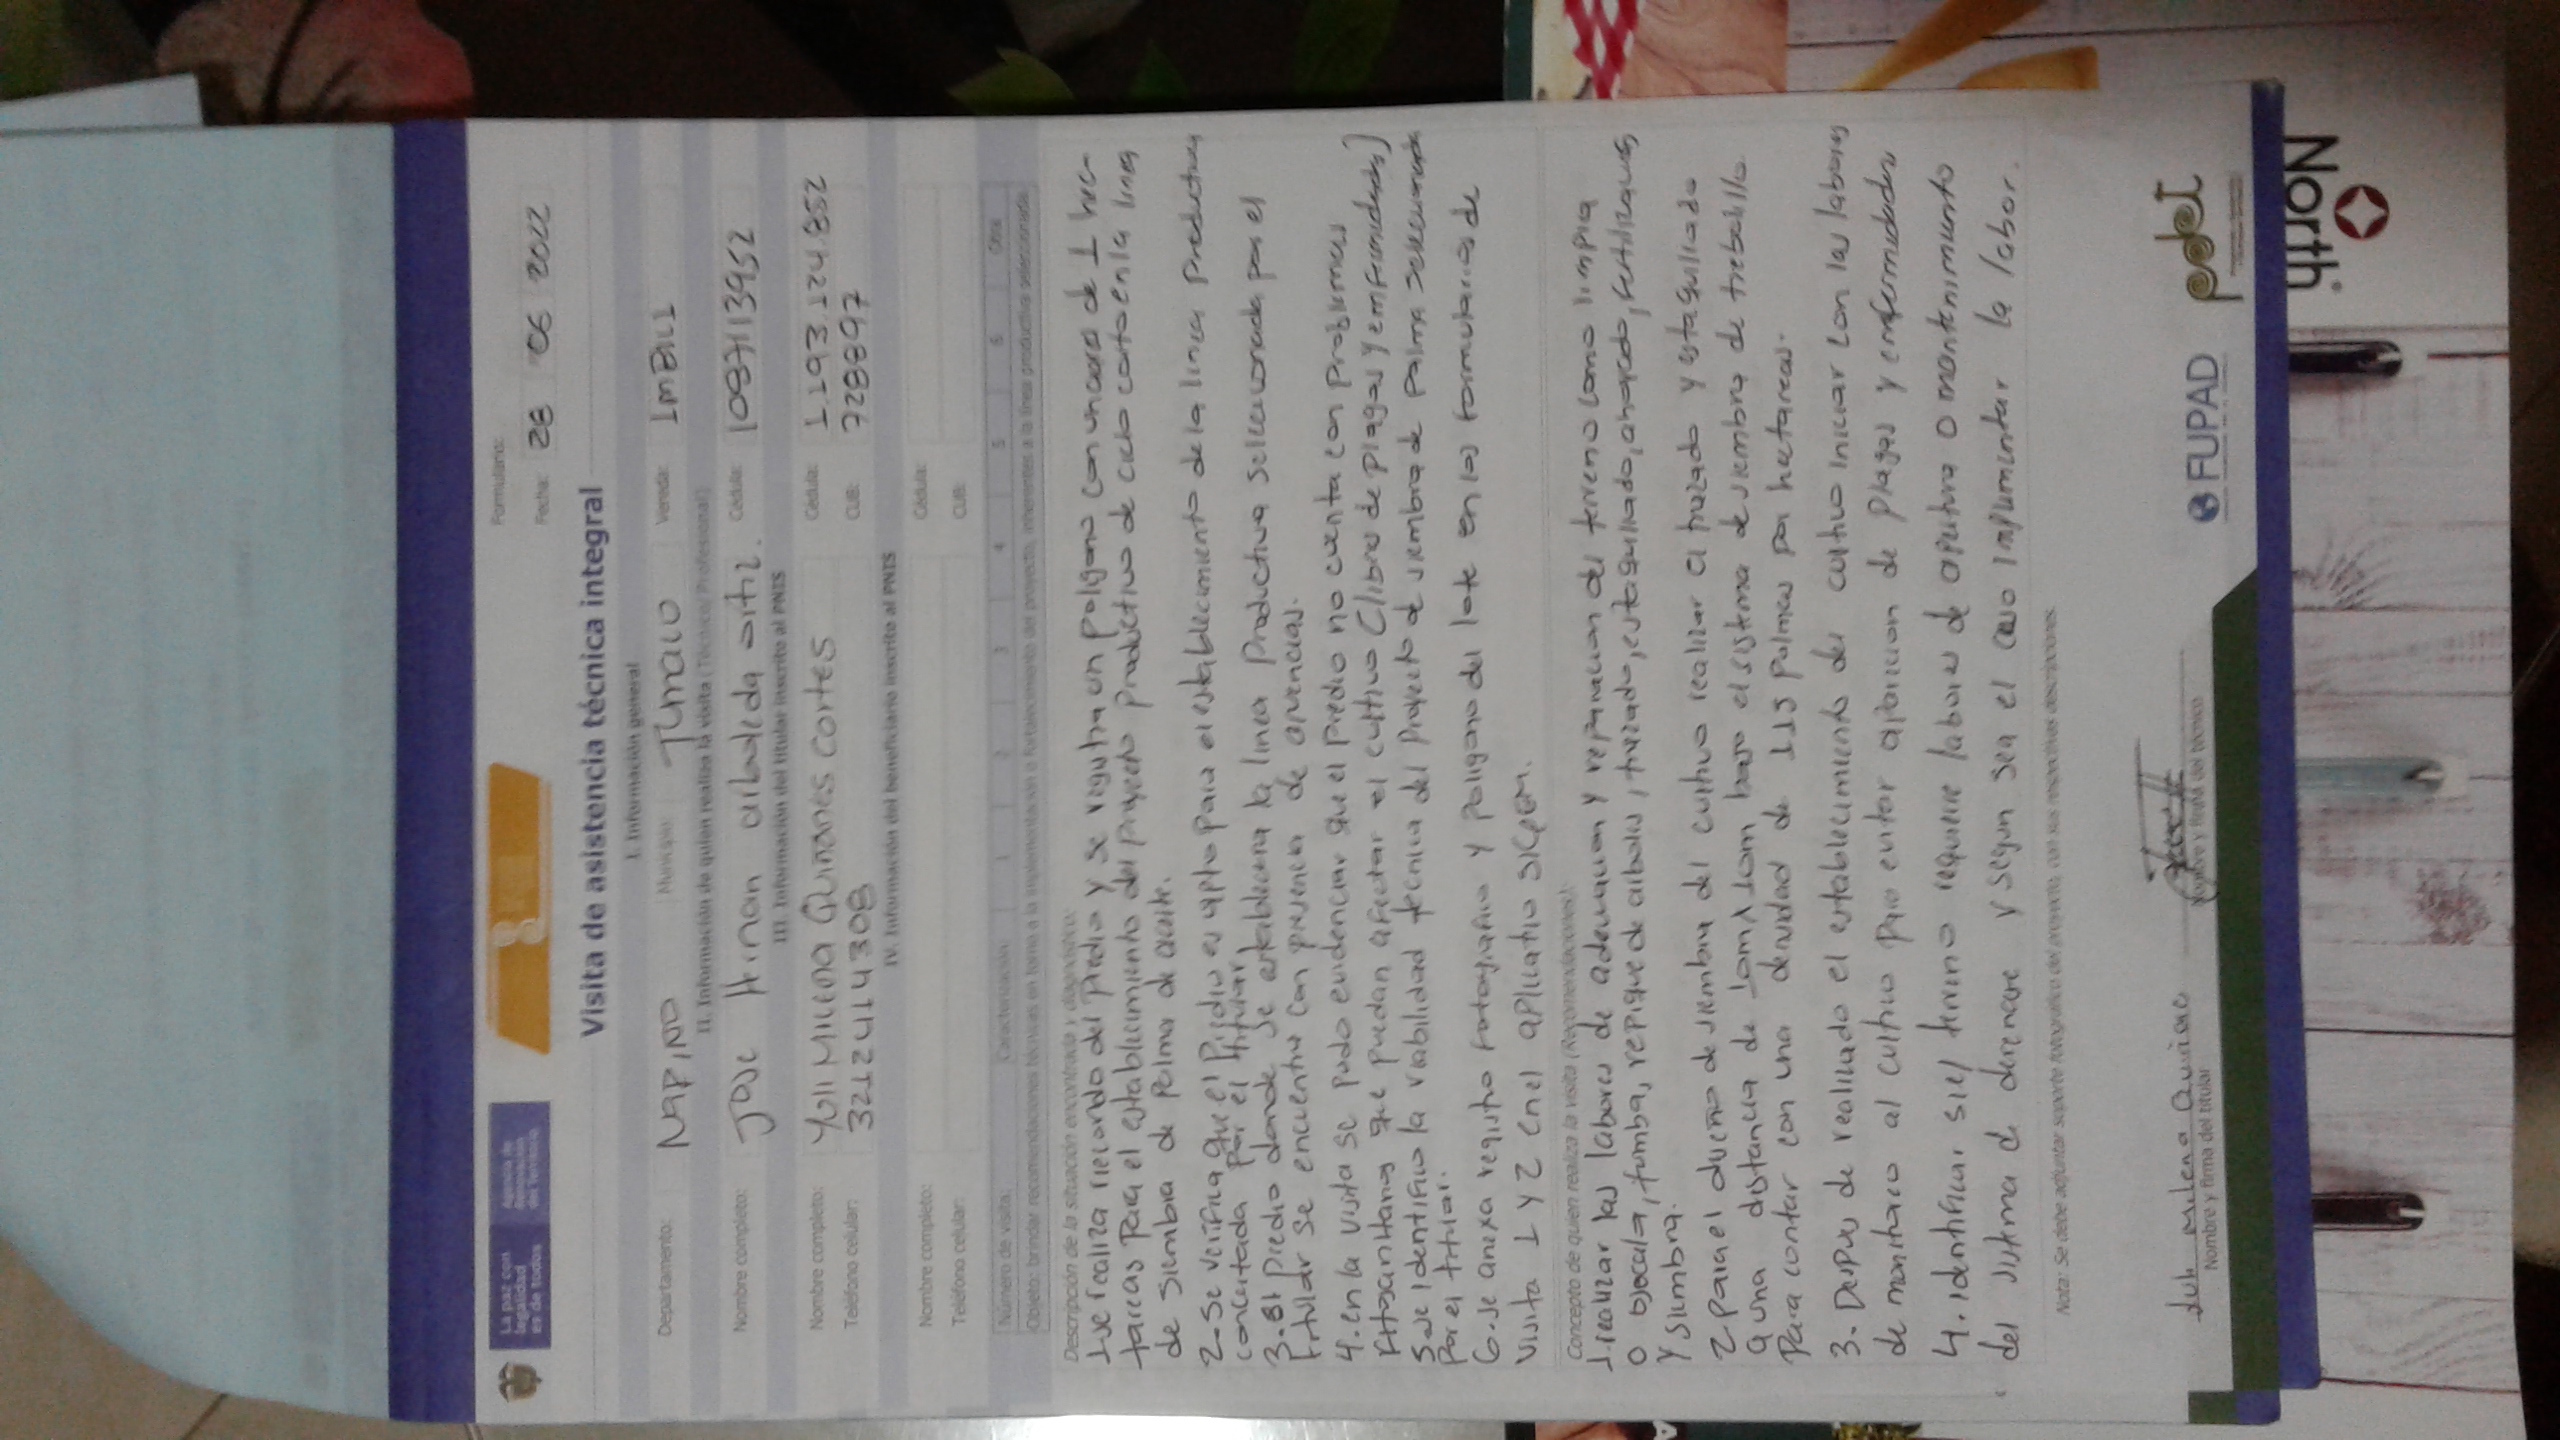 La paz con
legalidad
es de todos
Agencia de
Renovación
del Territorio
Formulario:
Fecha: 28 06 2022
Visita de asistencia técnica integral
I. Información general
Departamento: NARIÑO Municipio: Tumaco Vereda: ImBILI
II. Información de quien realiza la visita (Técnico/ Profesional)
Nombre completo: Jose Hernan arboleda ortiz. Cédula: 1087113952
III. Información del titular inscrito al PNIS
Nombre completo: Yuli Milena Quiñones cortes Cédula: 1.193.124.852
Teléfono celular: 3212414308 CUB: 728897
IV. Información del beneficiario inscrito al PNIS
Nombre completo: Cédula:
Teléfono celular: CUB:
Número de visita: Caracterización 1 2 3 4 5 6 Otra
Objeto: brindar recomendaciones técnicas en torno a la implementación o fortalecimiento del proyecto, inherentes a la línea productiva seleccionada.
Descripción de la situación encontrada y diagnóstico:
1-se realiza recorrido del Predio y se registra un poligono con un area de 1 hec-
tareas Para el establecimiento del proyecto productivo de ciclo corto en la linea
de siembra de palma de aceite.
2-Se verifica que el Predio es apto para el establecimiento de la linea productiva
concertada por el titular.
3. El Predio donde se establecera la linea productiva seleccionada por el
titular se encuentra con presencia de arvencias.
4. en la visita se pudo evidenciar que el predio no cuenta con problemas
fitosanitarios que puedan afectar el cultivo (libres de plagas y enfermedades)
5. se identifico la viabilidad tecnica del proyecto de siembra de palma seleccionada
por el titular.
6. se anexa registro fotografico y poligono del lote en los formularios de
visita 1 y 2 en el aplicativo SIGPOM.
Concepto de quien realiza la visita (Recomendaciones):
1. realizar las labores de adecuacion y reparacion del terreno como limpia
o socala, tumba, repique de arboles, trazado, estaquillado, ahoyado, fertilizaques
y siembra.
2 para el diseño de siembra del cultivo realizar el trazado y estaquillado
a una distancia de 10m x 10m bajo el sistema de siembra de tresbolillo
Para contar con una densidad de 115 palmas por hectareas.
3. Despues de realizado el establecimiento del cultivo iniciar con las labores
de monitoreo al cultivo para evitar aparicion de plagas y enfermedades
4. identificar si el terreno requiere labores de apertura o mantenimiento
del sistema de drenaje y segun sea el caso implementar la labor.
Nota: Se debe adjuntar soporte fotográfico del proyecto, con sus respectivas descripciones.
Yuli milena Quiñones
Nombre y firma del titular
Nombre y firma del técnico
FUPAD
pdet
North